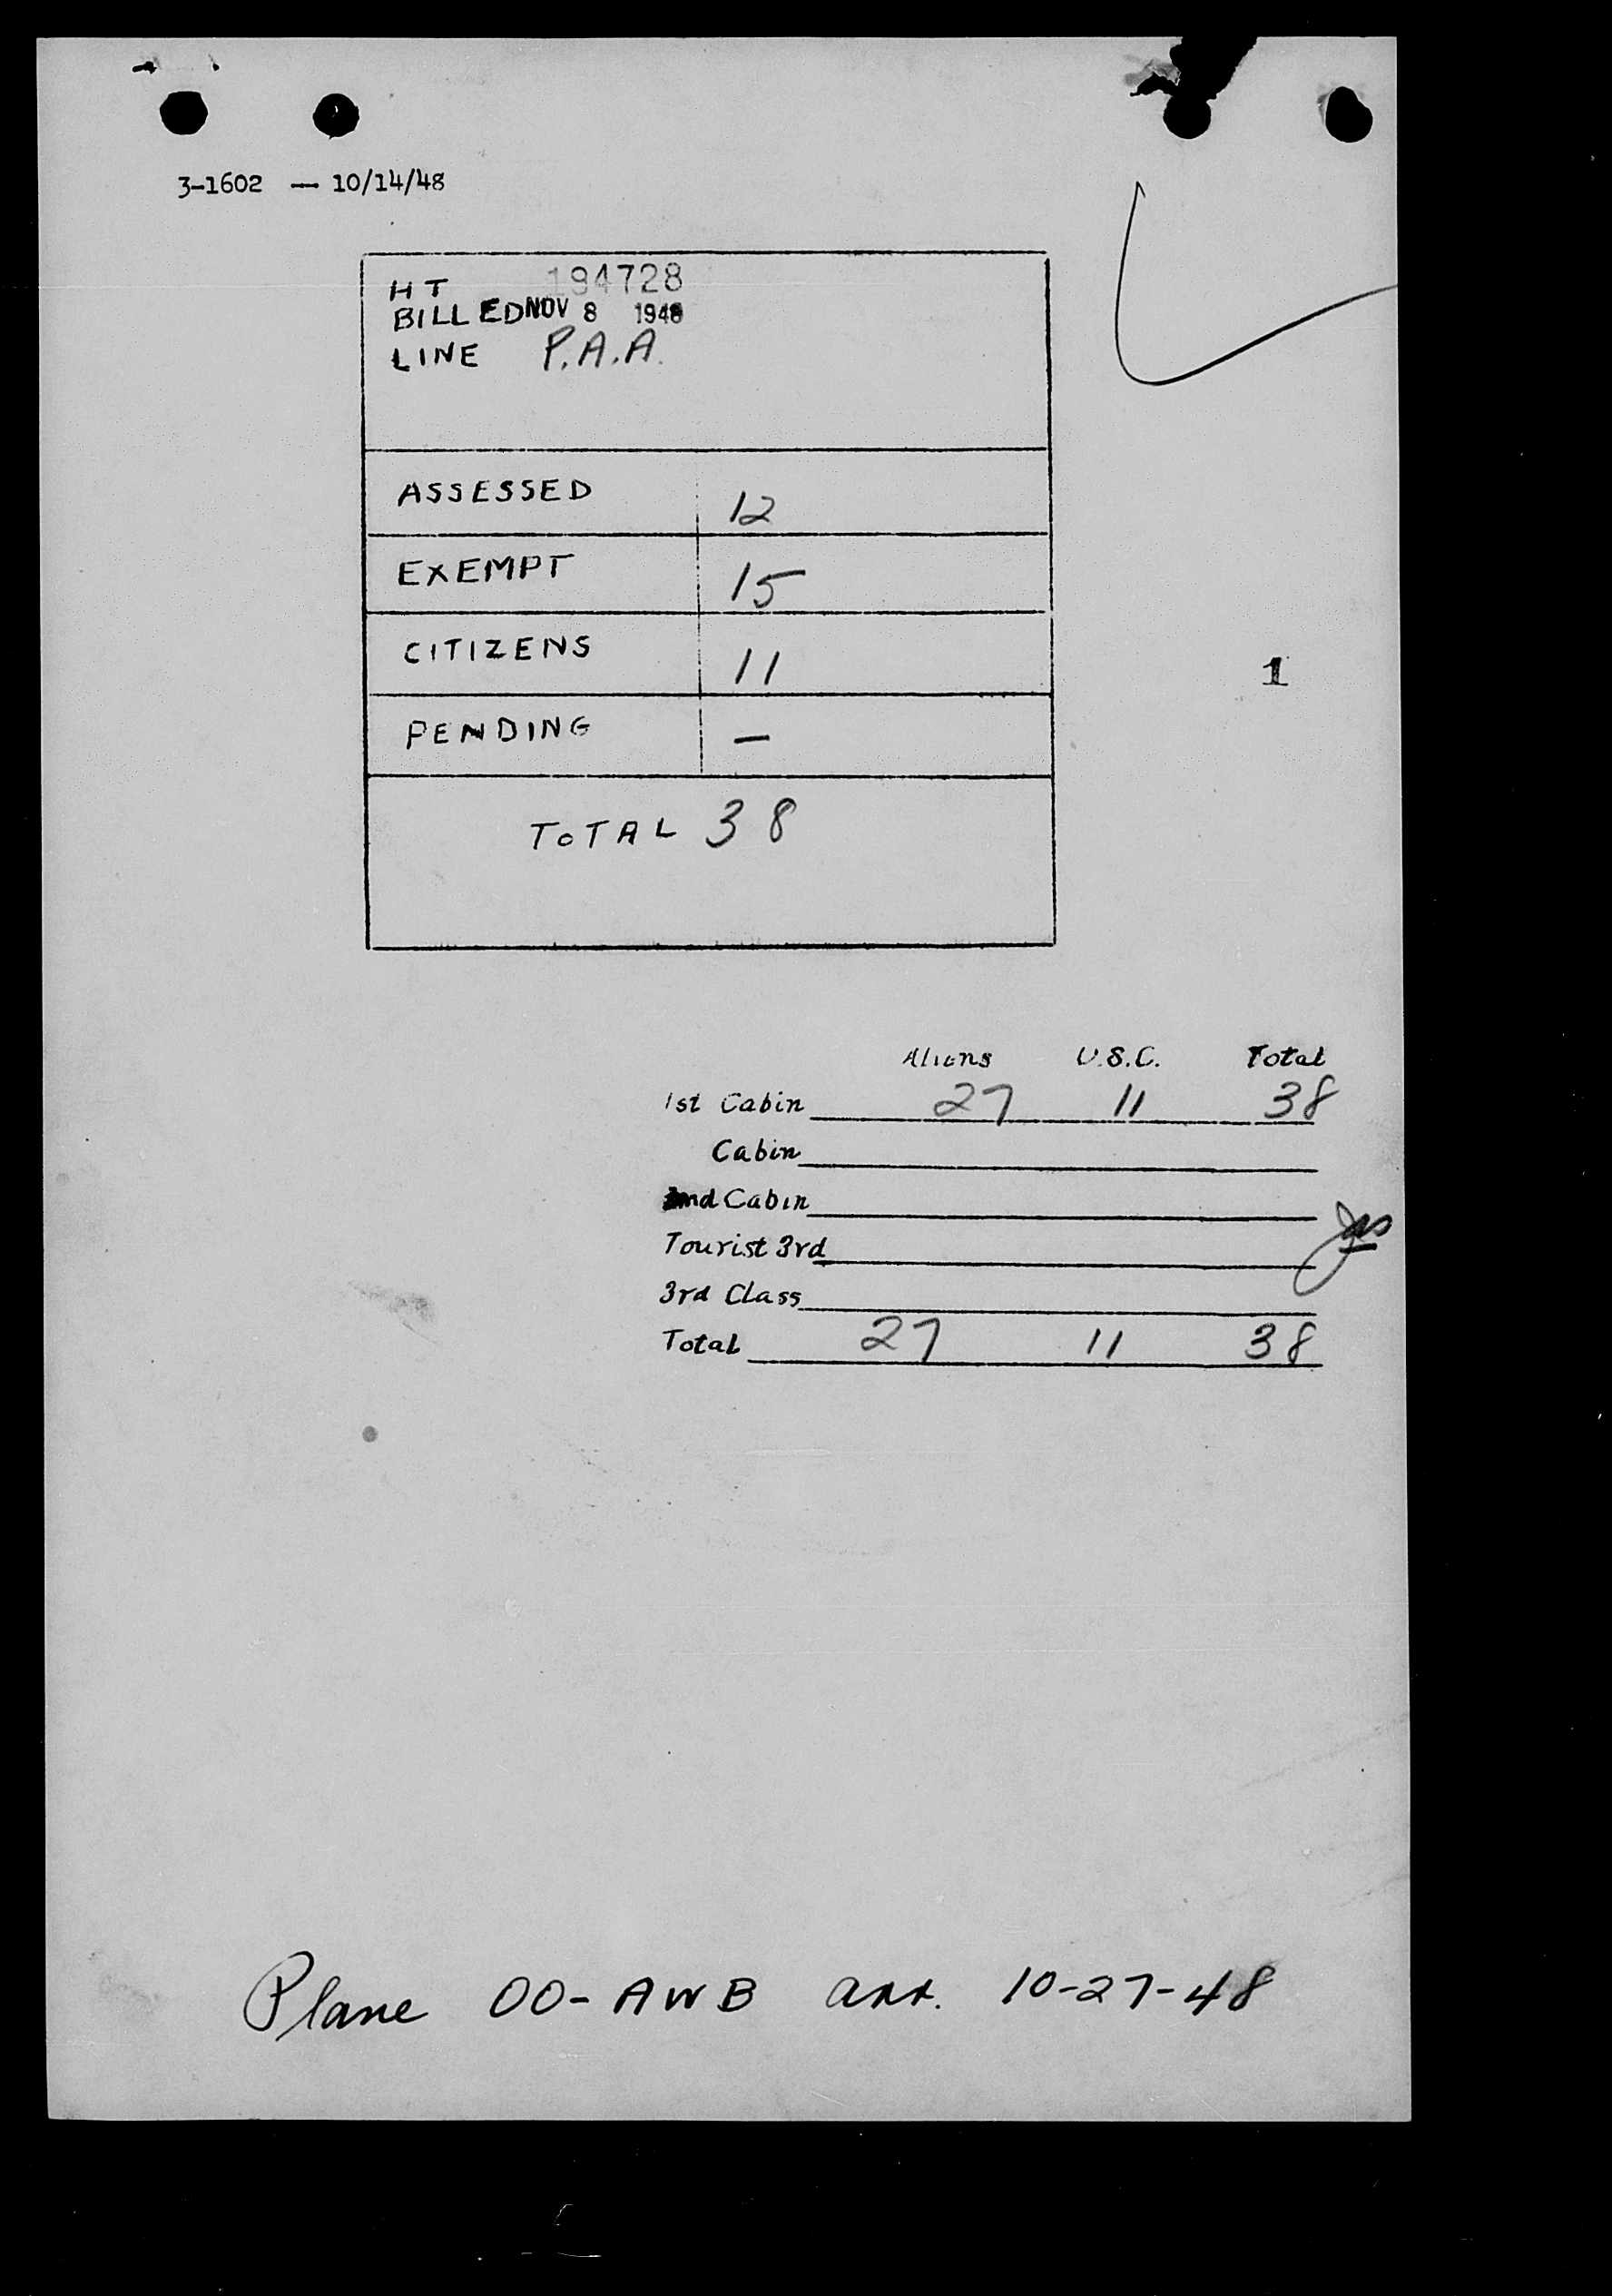 3-1602 — 10/14/48
HT 194728
BILLED NOV 8 1948
LINE P.A.A.
ASSESSED 12
EXEMPT 15
CITIZENS 11
1
PENDING —
TOTAL 38
Aliens U.S.C. Total
1st Cabin 27 11 38
Cabin
2nd Cabin
Tourist 3rd
3rd Class
Total 27 11 38
Plane OO-AWB arr. 10-27-48